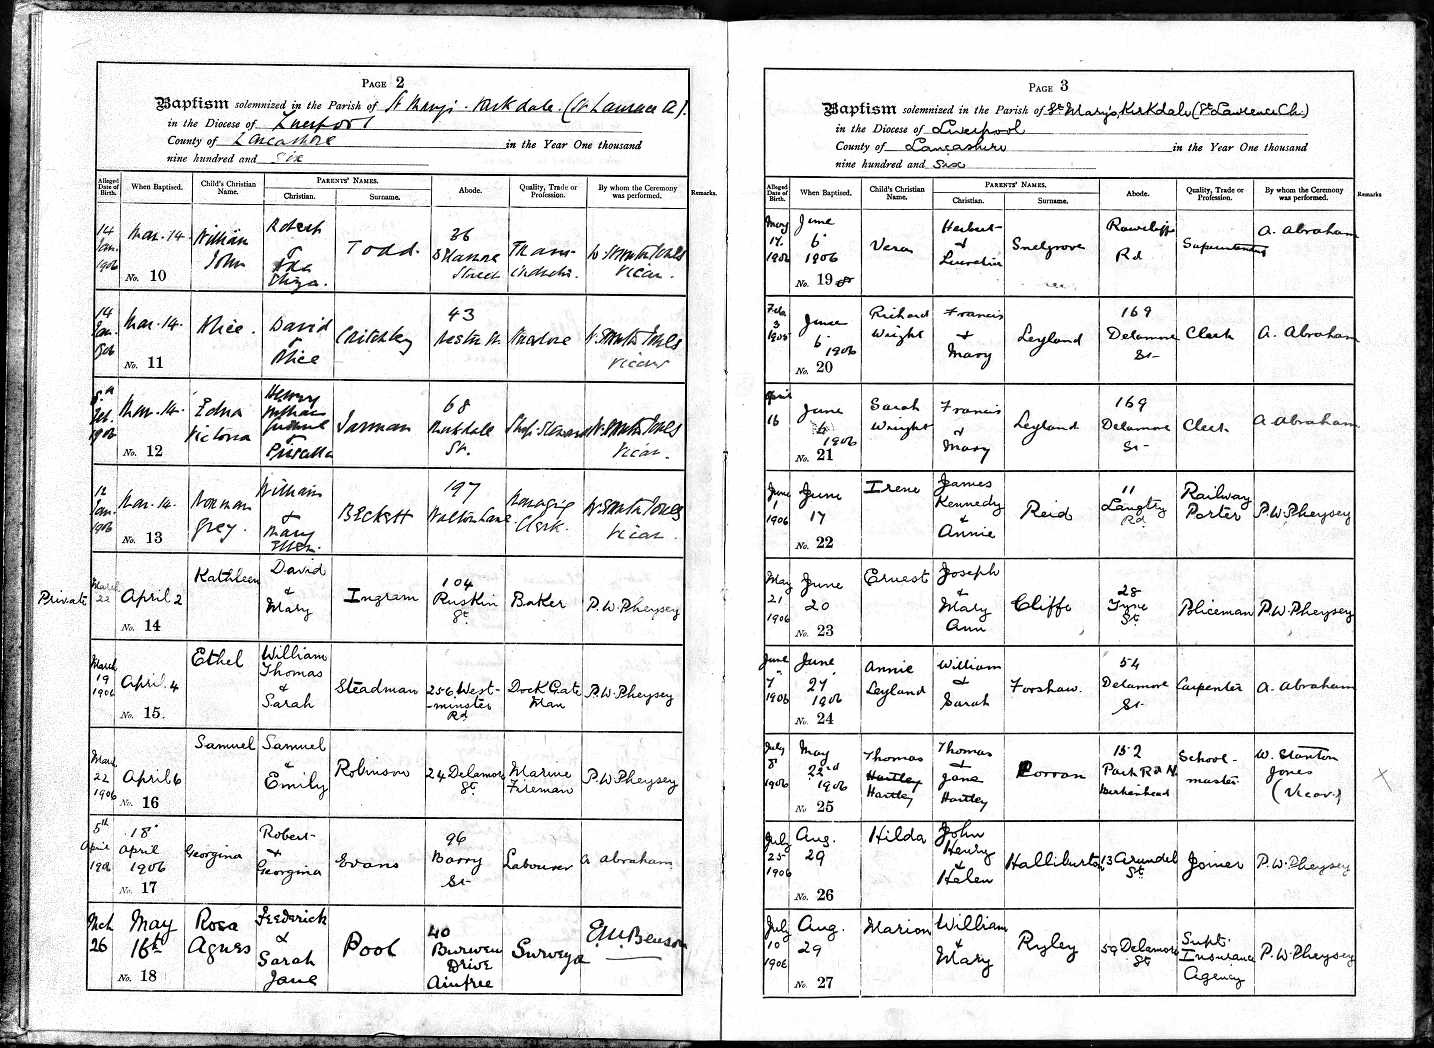 PAGE 2
Baptism solemnized in the Parish of St Mary's. Kirkdale. (St Laurence Ch).
in the Diocese of Liverpool
County of Lancashire in the Year One thousand
nine hundred and six
Alleged Date of Birth. When Baptised. Child's Christian Name. PARENTS' NAMES. Christian. Surname. Abode. Quality, Trade or Profession. By whom the Ceremony was performed. Remarks.
14 Jan. 1906
Mar. 14
No. 10
William John
Robert & Ada Eliza.
Todd.
36 Street
W. Stanton Jones Vicar.
14 Jan. 1906
Mar. 14.
No. 11
Alice.
David & Alice
Critchley
43
W. Stanton Jones Vicar
8th Feb. 1906
Mar. 14.
No. 12
Edna Victoria
Henry & Priscilla
Jarman
68 Kirkdale St.
Ship's Steward
W. Stanton Jones Vicar.
12 Jan. 1906
Mar. 14.
No. 13
Norman Grey.
William & Mary Ellen.
Beckett
197 Walton Lane
Managing Clerk.
W. Stanton Jones Vicar.
Private
March 22
April 2
No. 14
Kathleen
David & Mary
Ingram
104 Ruskin St.
Baker
P. W. Pheysey
March 19 1906
April 4
No. 15.
Ethel
William Thomas & Sarah
Steadman
256 West-minster Rd
Dock Gate Man
P. W. Pheysey
March 22 1906
April 6
No. 16
Samuel
Samuel & Emily
Robinson
24 Delamore St.
Marine Fireman
P. W. Pheysey
5th April 1906
18 April 1906
No. 17
Georgina
Robert & Georgina
Evans
96 Barry St
Labourer
A. Abraham
Mch 26
May 16th
No. 18
Rosa Agnes
Frederick & Sarah Jane
Pool
40 Burwen Drive Aintree
Surveyor
E. M. Benson
PAGE 3
Baptism solemnized in the Parish of St. Mary's, Kirkdale (St. Lawrence Ch.)
in the Diocese of Liverpool
County of Lancashire in the Year One thousand
nine hundred and six
Alleged Date of Birth. When Baptised. Child's Christian Name. PARENTS' NAMES. Christian. Surname. Abode. Quality, Trade or Profession. By whom the Ceremony was performed. Remarks
May 17. 1906
June 6 1906
No. 19
Vera
Herbert & Lucretia
Snelgrove
Rawcliffe Rd
Superintendent
A. Abraham
Feb. 3 1905
June 6 1906
No. 20
Richard Wright
Francis & Mary
Leyland
169 Delamore St
Clerk
A. Abraham
April 16
June 6 1906
No. 21
Sarah Wright
Francis & Mary
Leyland
169 Delamore St
Clerk
A Abraham
June 1 1906
June 17
No. 22
Irene
James Kennedy & Annie
Reid
11 Langtry Rd
Railway Porter
P. W. Pheysey
May 21 1906
June 20
No. 23
Ernest
Joseph & Mary Ann
Cliffe
28 Tyne St.
Policeman
P. W. Pheysey
June 7 1906
June 27 1906
No. 24
Annie Leyland
William & Sarah
Forshaw.
54 Delamore St
Carpenter
A. Abraham
July 8 1906
May 22nd 1906
No. 25
Thomas Hartley Hartley
Thomas & Jane Hartley
Corran
152 Park Rd N. Birkenhead
School-master
W. Stanton Jones (Vicar)
X
July 25 1906
Aug. 29
No. 26
Hilda
John Henry & Helen
Halliburton
13 Arundel St.
Joiner
P. W. Pheysey
July 10 1906
Aug. 29
No. 27
Marion
William & Mary
Ryley
59 Delamore St
Supt. Insurance Agency
P. W. Pheysey